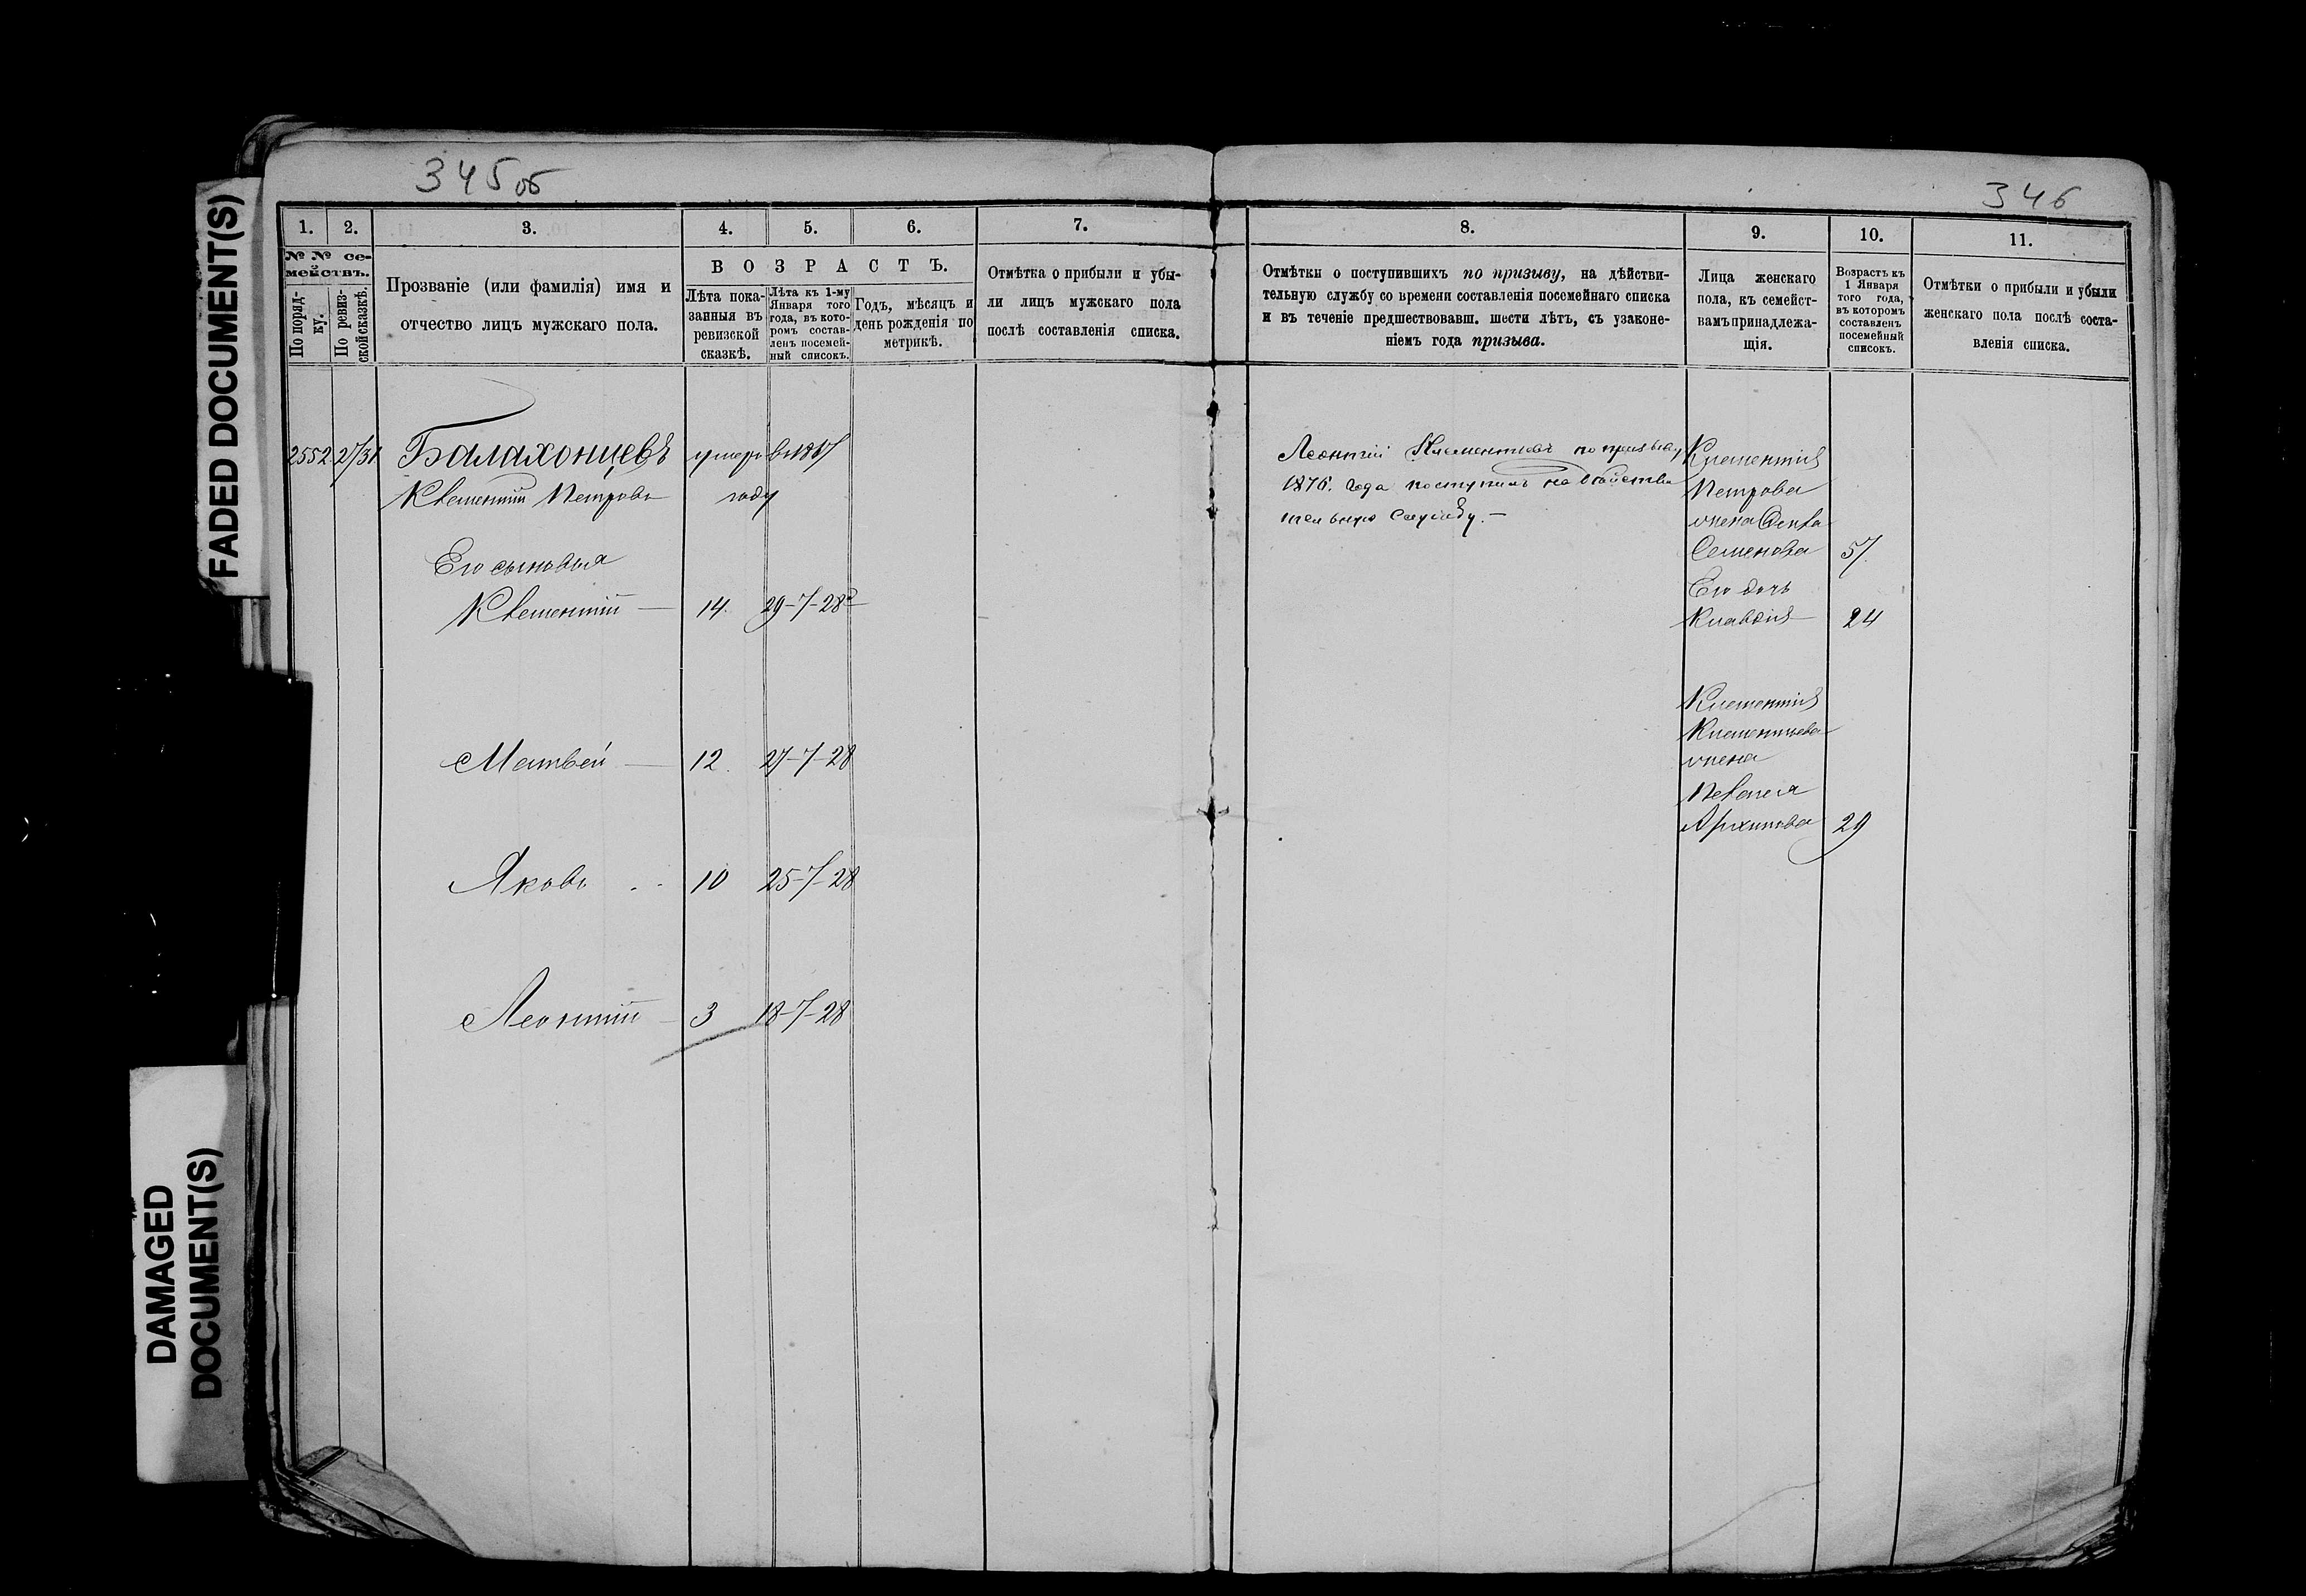 FADED DOCUMENT(S)
DAMAGED
DOCUMENT(S)
345об
346
1. 2. 3. 4. 5. 6. 7.
№ № се-
мействъ.
По поряд-
ку.
По ревиз-
ской сказкѣ.
Прозваніе (или фамилія) имя и
отчество лицъ мужскаго пола.
ВОЗРАСТЪ.
Лѣта пока-
занныя въ
ревизской
сказкѣ.
Лѣта къ 1-му
Января того
года, въ кото-
ромъ состав-
ленъ посемей-
ный списокъ.
Годъ, мѣсяцъ и
день рожденія по
метрикѣ.
Отмѣтка о прибыли и убы-
ли лицъ мужскаго пола
послѣ составленія списка.
2552 Балахонцевъ умеръ въ
Клементий Петровъ году
Его сыновья
Клементій 14. 29-7-28
Матвей 12. 27-7-28
Яковъ 10 25-7-28
Леонтий 3 18-7-28
8. 9. 10. 11.
Отмѣтки о поступившихъ по призыву, на дѣйстви-
тельную службу со времени составленія посемейнаго списка
и въ теченіе предшествовавш. шести лѣтъ, съ узаконе-
ніемъ года призыва.
Лица женскаго
пола, къ семейст-
вамъ принадлежа-
щія.
Возрастъ къ
1 Января
того года,
въ которомъ
составленъ
посемейный
списокъ.
Отмѣтки о прибыли и убыли
женскаго пола послѣ соста-
вленія списка.
Леонтій Клементьевъ по призыву
1876. года поступилъ на действи
тельную службу. —
Клементія
Петрова
жена
Семенова 57.
Его дочь
Клавдія 24
Клементія
Клементьева
жена
Пелагея
Архипова 29